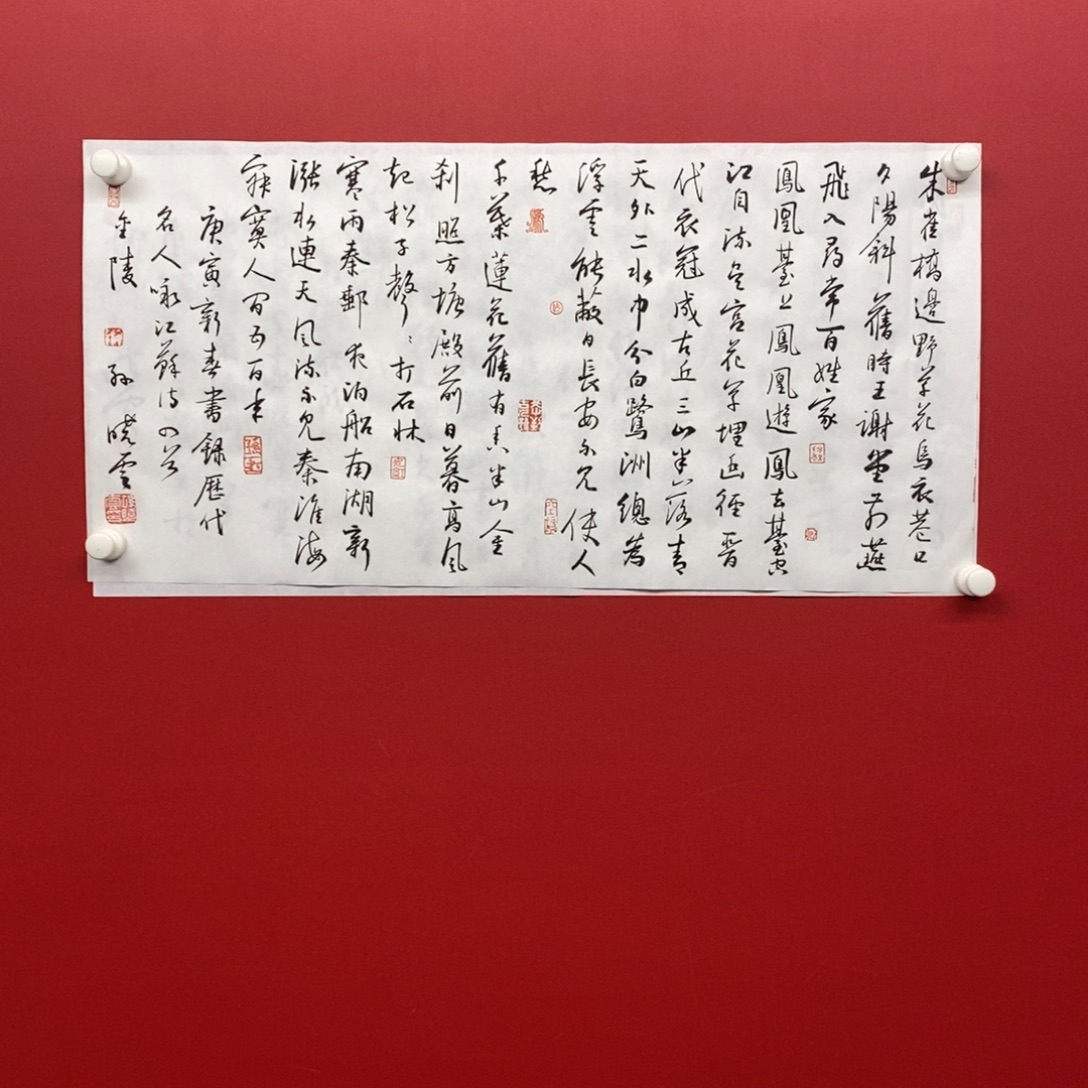 朱雀橋邊野草花烏衣巷口
夕陽斜舊時王謝堂前燕
飛入尋常百姓家
鳳凰臺上鳳凰遊鳳去臺空
江自流吳宮花草埋幽徑晉
代衣冠成古丘三山半落青
天外二水中分白鷺洲總為
浮雲能蔽日長安不見使人
愁
千葉蓮花舊有香半山金
刹照方塘殿前日暮高風
起松子聲〻打石牀
寒雨秦郵夜泊船南湖新
漲水連天風流不見秦淮海
寂寞人間五百年
庚寅新春書錄歷代
名人咏江蘇詩四首
金陵 孫曉雲